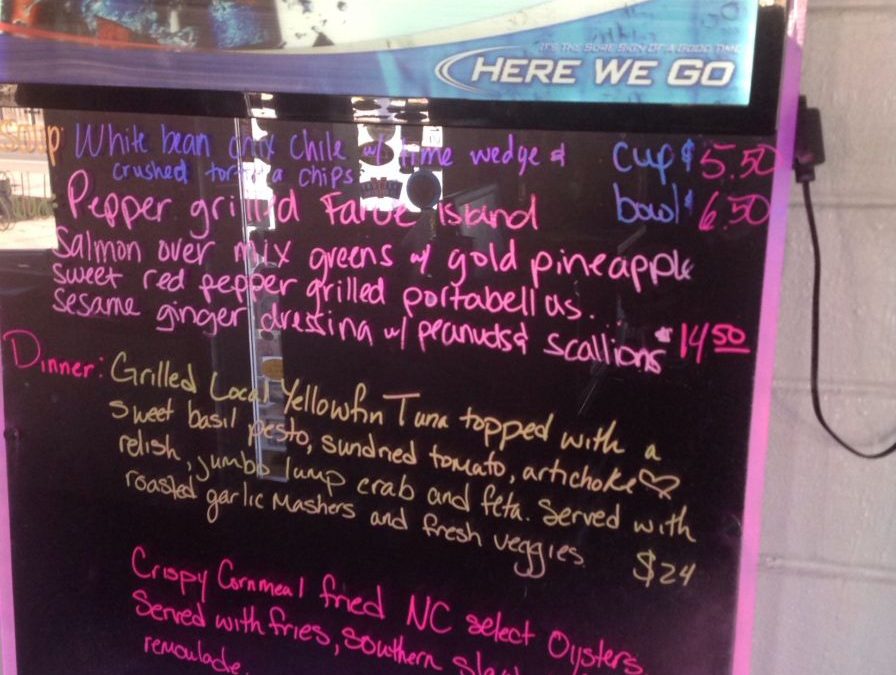 IT'S THE SURE SIGN OF A GOOD TIME
HERE WE GO
Soup: White bean chix Chile w/ lime wedge & cup $5.50
crushed tortilla chips bowl $6.50
Pepper grilled Faroe Island
Salmon over mix greens w/ gold pineapple
sweet red pepper grilled portabellas.
Sesame ginger dressing w/ peanuds & scallions $14 50
Dinner: Grilled Local Yellowfin Tuna topped with a
sweet basil pesto, sundried tomato, artichoke♡
relish, jumbo lump crab and feta. Served with
roasted garlic Mashers and fresh veggies $24
Crispy Cornmeal fried NC select Oysters
Served with fries, Southern Slaw
remoulade.